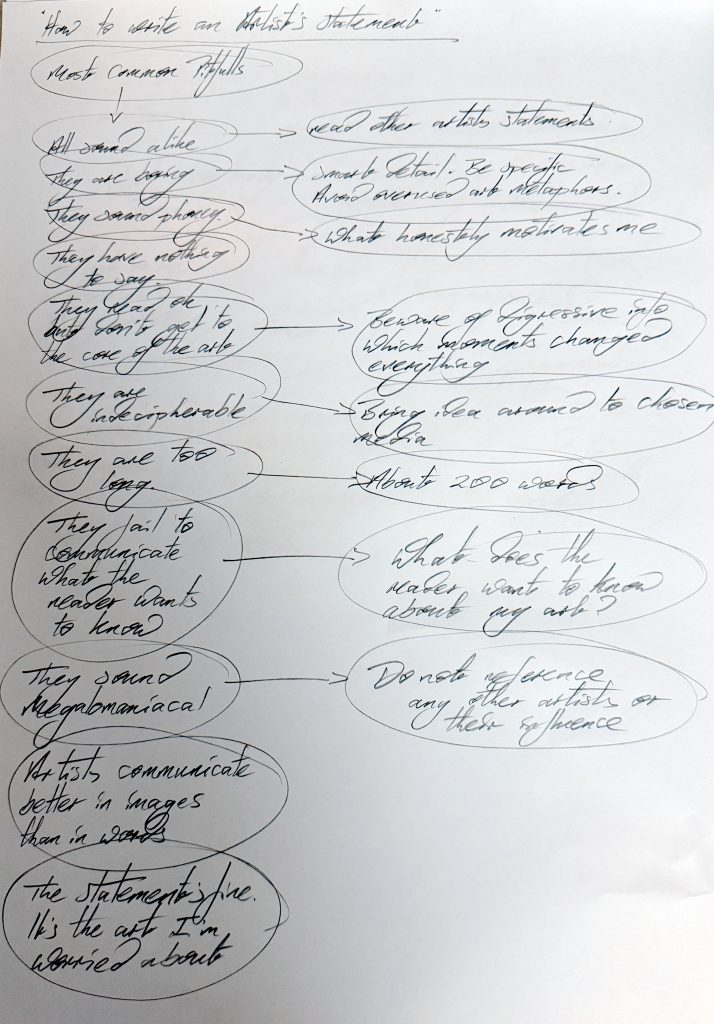 "How to write an Artist's statement"
Most common Pitfalls
All sound alike
read other artists statements.
They are boring
Smart detail. Be specific
Avoid overused art metaphors.
They sound phoney.
What honestly motivates me
They have nothing
to say.
They read ok
and don't get to
the core of the art
Beware of digressive info
which moments changed
everything
They are
indecipherable
Bring idea around to chosen
media
They are too
long.
About 200 words
They fail to
communicate
what the
reader wants
to know
What does the
reader want to know
about my art?
They sound
Megalomaniacal
Do not reference
any other artists or
their influence
Artists communicate
better in images
than in words
The statement's fine.
It's the art I'm
worried about